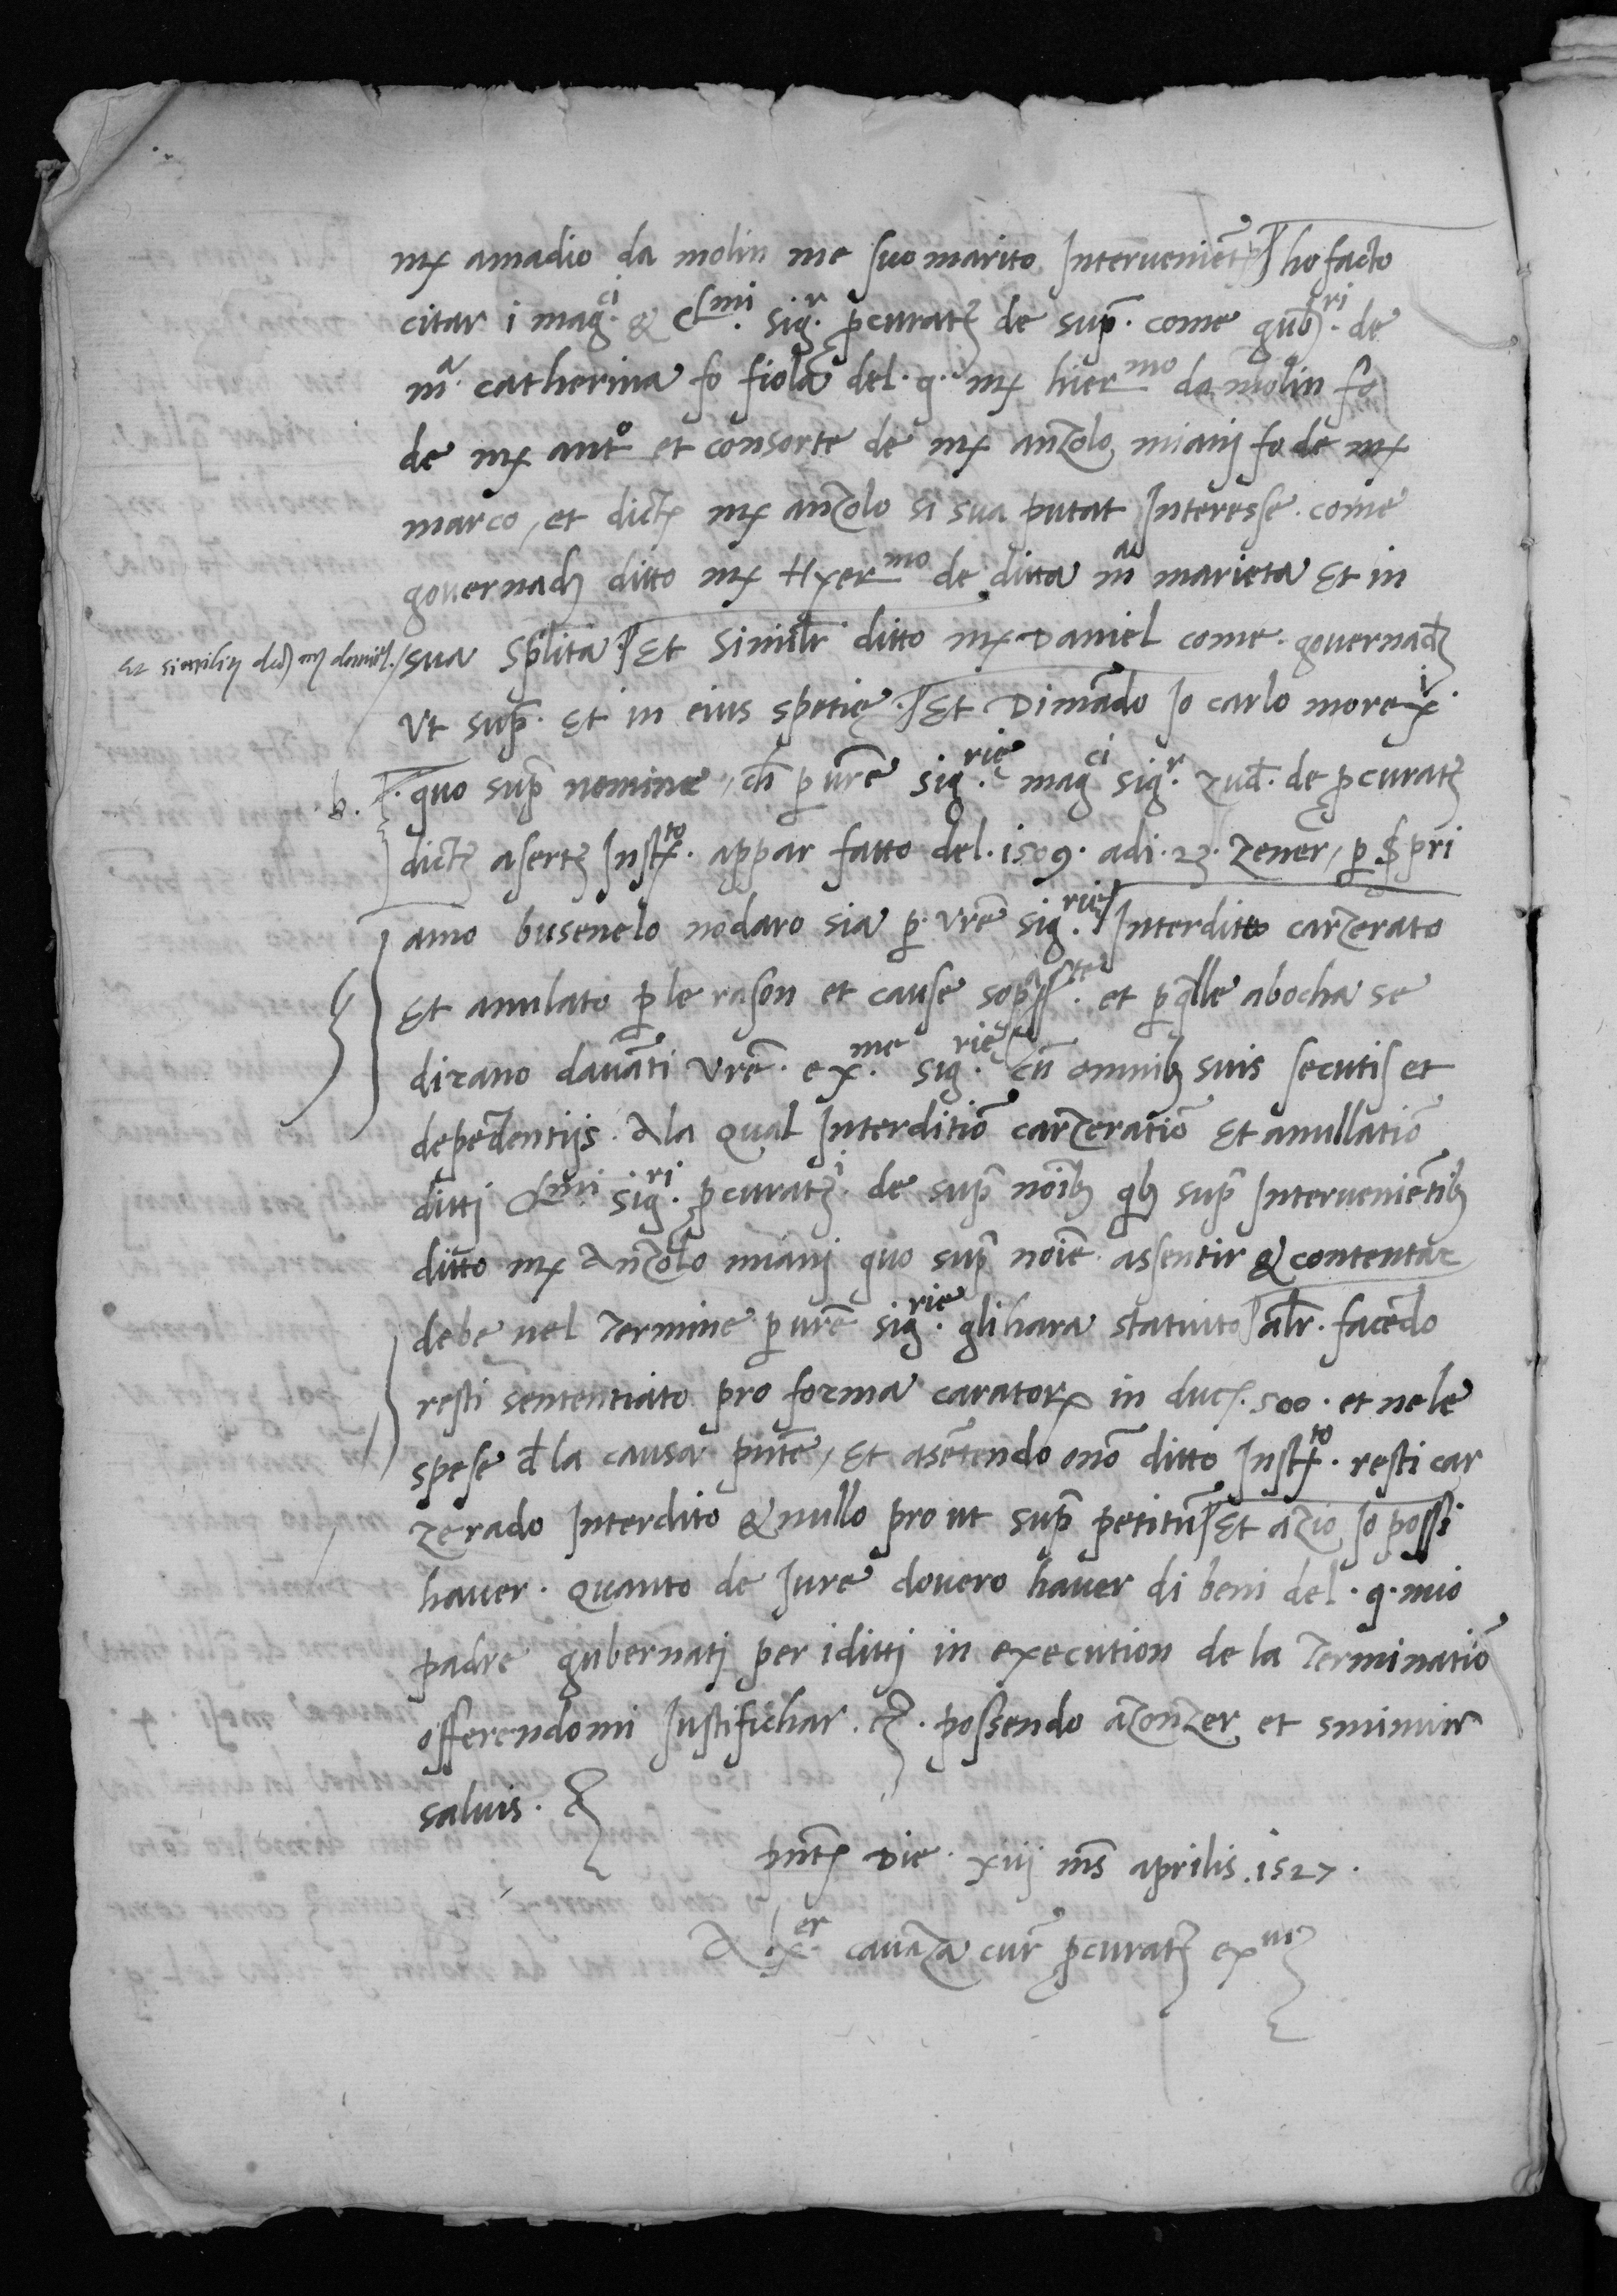 mʒ amadio da molin me suo marito Intervenieñt ho facto
citar i mag.ci & Clmi. sig.r pcuratʒ de sup. come gub.ri de
m.a catherina fo fiola del. q. mʒ hiermo da molin fo
de mʒ anto et consorte de mʒ anzolo miani fo de mʒ
marco, et dictʒ mʒ anzolo si sua putat Interesse. come
governadʒ ditto mʒ Hyermo de ditta ma marieta Et in
Et similiʒ dcʒ mʒ daniel.
sua splita Et Similr ditto mʒ Daniel come. governadʒ
Ut sup. Et in eius spetie. Et Dimãdo Io carlo morexi.
.b.
quo sup nomine, ch p vrẽ sig.rie magci sig.r zud. de pcuratʒ
dictʒ asertʒ Instto. appar fatto del. 1509. adi. 23. zener, p s pri
amo busenelo nodaro sia p. vrẽ sig.rie Interditto carzerato
Et anulato p le rason et cause sopste. et p qlle abocha se
dirano davãti vrẽ. exme. sig.rie cũ omnibʒ suis secutis et
depẽdentijs. A la qual Interditiõ carzeratiõ Et anullatiõ
ditti Clmi sig.ri pcuratʒi. de sup noĩbʒ qbʒ sup Intervenieñtibʒ
ditto mʒ Anzolo miani quo sup noĩe assentir & contentar
debe nel Termine p vrẽ sig.rie gli hara statuito alr. facẽdo
resti sententiato pro forma caratorʒ in ducʒ. 500. et ne le
spese d la causa pñte, Et asẽtendo onõ ditto Instto. resti car
zerado Interdito & nullo pro ut sup petitũ Et azio Io possi
haver. quanto de Iure dovero haver di beni del. q. mio
padre gubernati per i ditti in execution de la Terminatiõ
offerendomi Iustifichar. &ʒ. possendo azonzer et sminuir
salvis. &ʒ
pñtʒ Die xiij mẽs aprilis. 1527.
Alxer. cavaza cur pcuratʒ ex